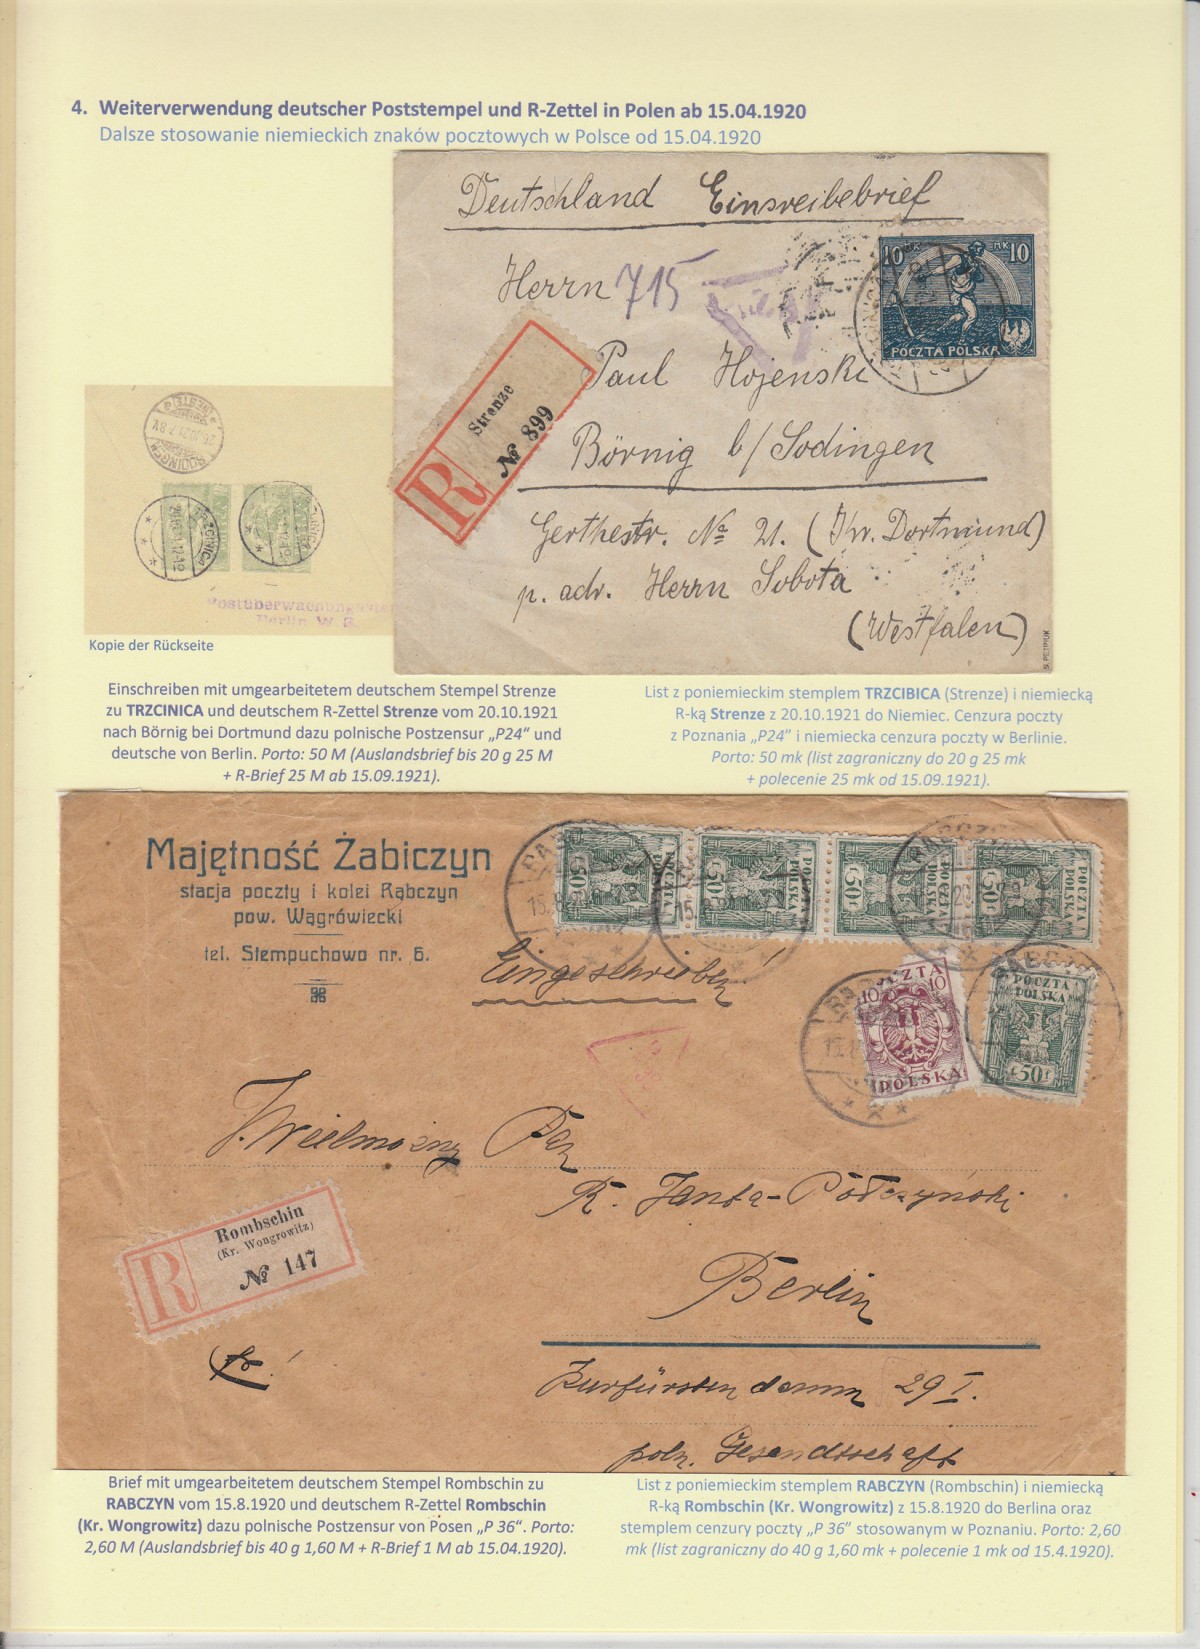 4. Weiterverwendung deutscher Poststempel und R-Zettel in Polen ab 15.04.1920
Dalsze stosowanie niemieckich znaków pocztowych w Polsce od 15.04.1920
Deutschland Einsreibebrief
Herrn 715
10 MK MK 10
POCZTA POLSKA
Paul Hojenski
Strenze
R № 899
Börnig b/Sodingen
Gerthestr. № 21. (Kr. Dortmund)
p. adr. Herrn Sobota
(Westfalen)
S. PETRIUK
SODINGEN
Postüberwachungs
Berlin W. 8.
Kopie der Rückseite
Einschreiben mit umgearbeitetem deutschem Stempel Strenze
zu TRZCINICA und deutschem R-Zettel Strenze vom 20.10.1921
nach Börnig bei Dortmund dazu polnische Postzensur „P24" und
deutsche von Berlin. Porto: 50 M (Auslandsbrief bis 20 g 25 M
+ R-Brief 25 M ab 15.09.1921).
List z poniemieckim stemplem TRZCIBICA (Strenze) i niemiecką
R-ką Strenze z 20.10.1921 do Niemiec. Cenzura poczty
z Poznania „P24" i niemiecka cenzura poczty w Berlinie.
Porto: 50 mk (list zagraniczny do 20 g 25 mk
+ polecenie 25 mk od 15.09.1921).
Majętność Żabiczyn
stacja poczty i kolei Rąbczyn
pow. Wągrówiecki
tel. Stempuchowo nr. 6.
50f POCZTA POLSKA
50f POCZTA POLSKA
50f POCZTA POLSKA
50f POCZTA POLSKA
Eingeschrieben!
POCZTA
10 10
POLSKA
POCZTA
POLSKA
50f
J. Wielmożny Pan
R. Janta-Połczyński
Berlin
Rombschin
(Kr. Wongrowitz)
R № 147
Kurfürstendamm 29 I.
poln. Gesandtschaft
Brief mit umgearbeitetem deutschem Stempel Rombschin zu
RABCZYN vom 15.8.1920 und deutschem R-Zettel Rombschin
(Kr. Wongrowitz) dazu polnische Postzensur von Posen „P 36". Porto:
2,60 M (Auslandsbrief bis 40 g 1,60 M + R-Brief 1 M ab 15.04.1920).
List z poniemieckim stemplem RABCZYN (Rombschin) i niemiecką
R-ką Rombschin (Kr. Wongrowitz) z 15.8.1920 do Berlina oraz
stemplem cenzury poczty „P 36" stosowanym w Poznaniu. Porto: 2,60
mk (list zagraniczny do 40 g 1,60 mk + polecenie 1 mk od 15.4.1920).